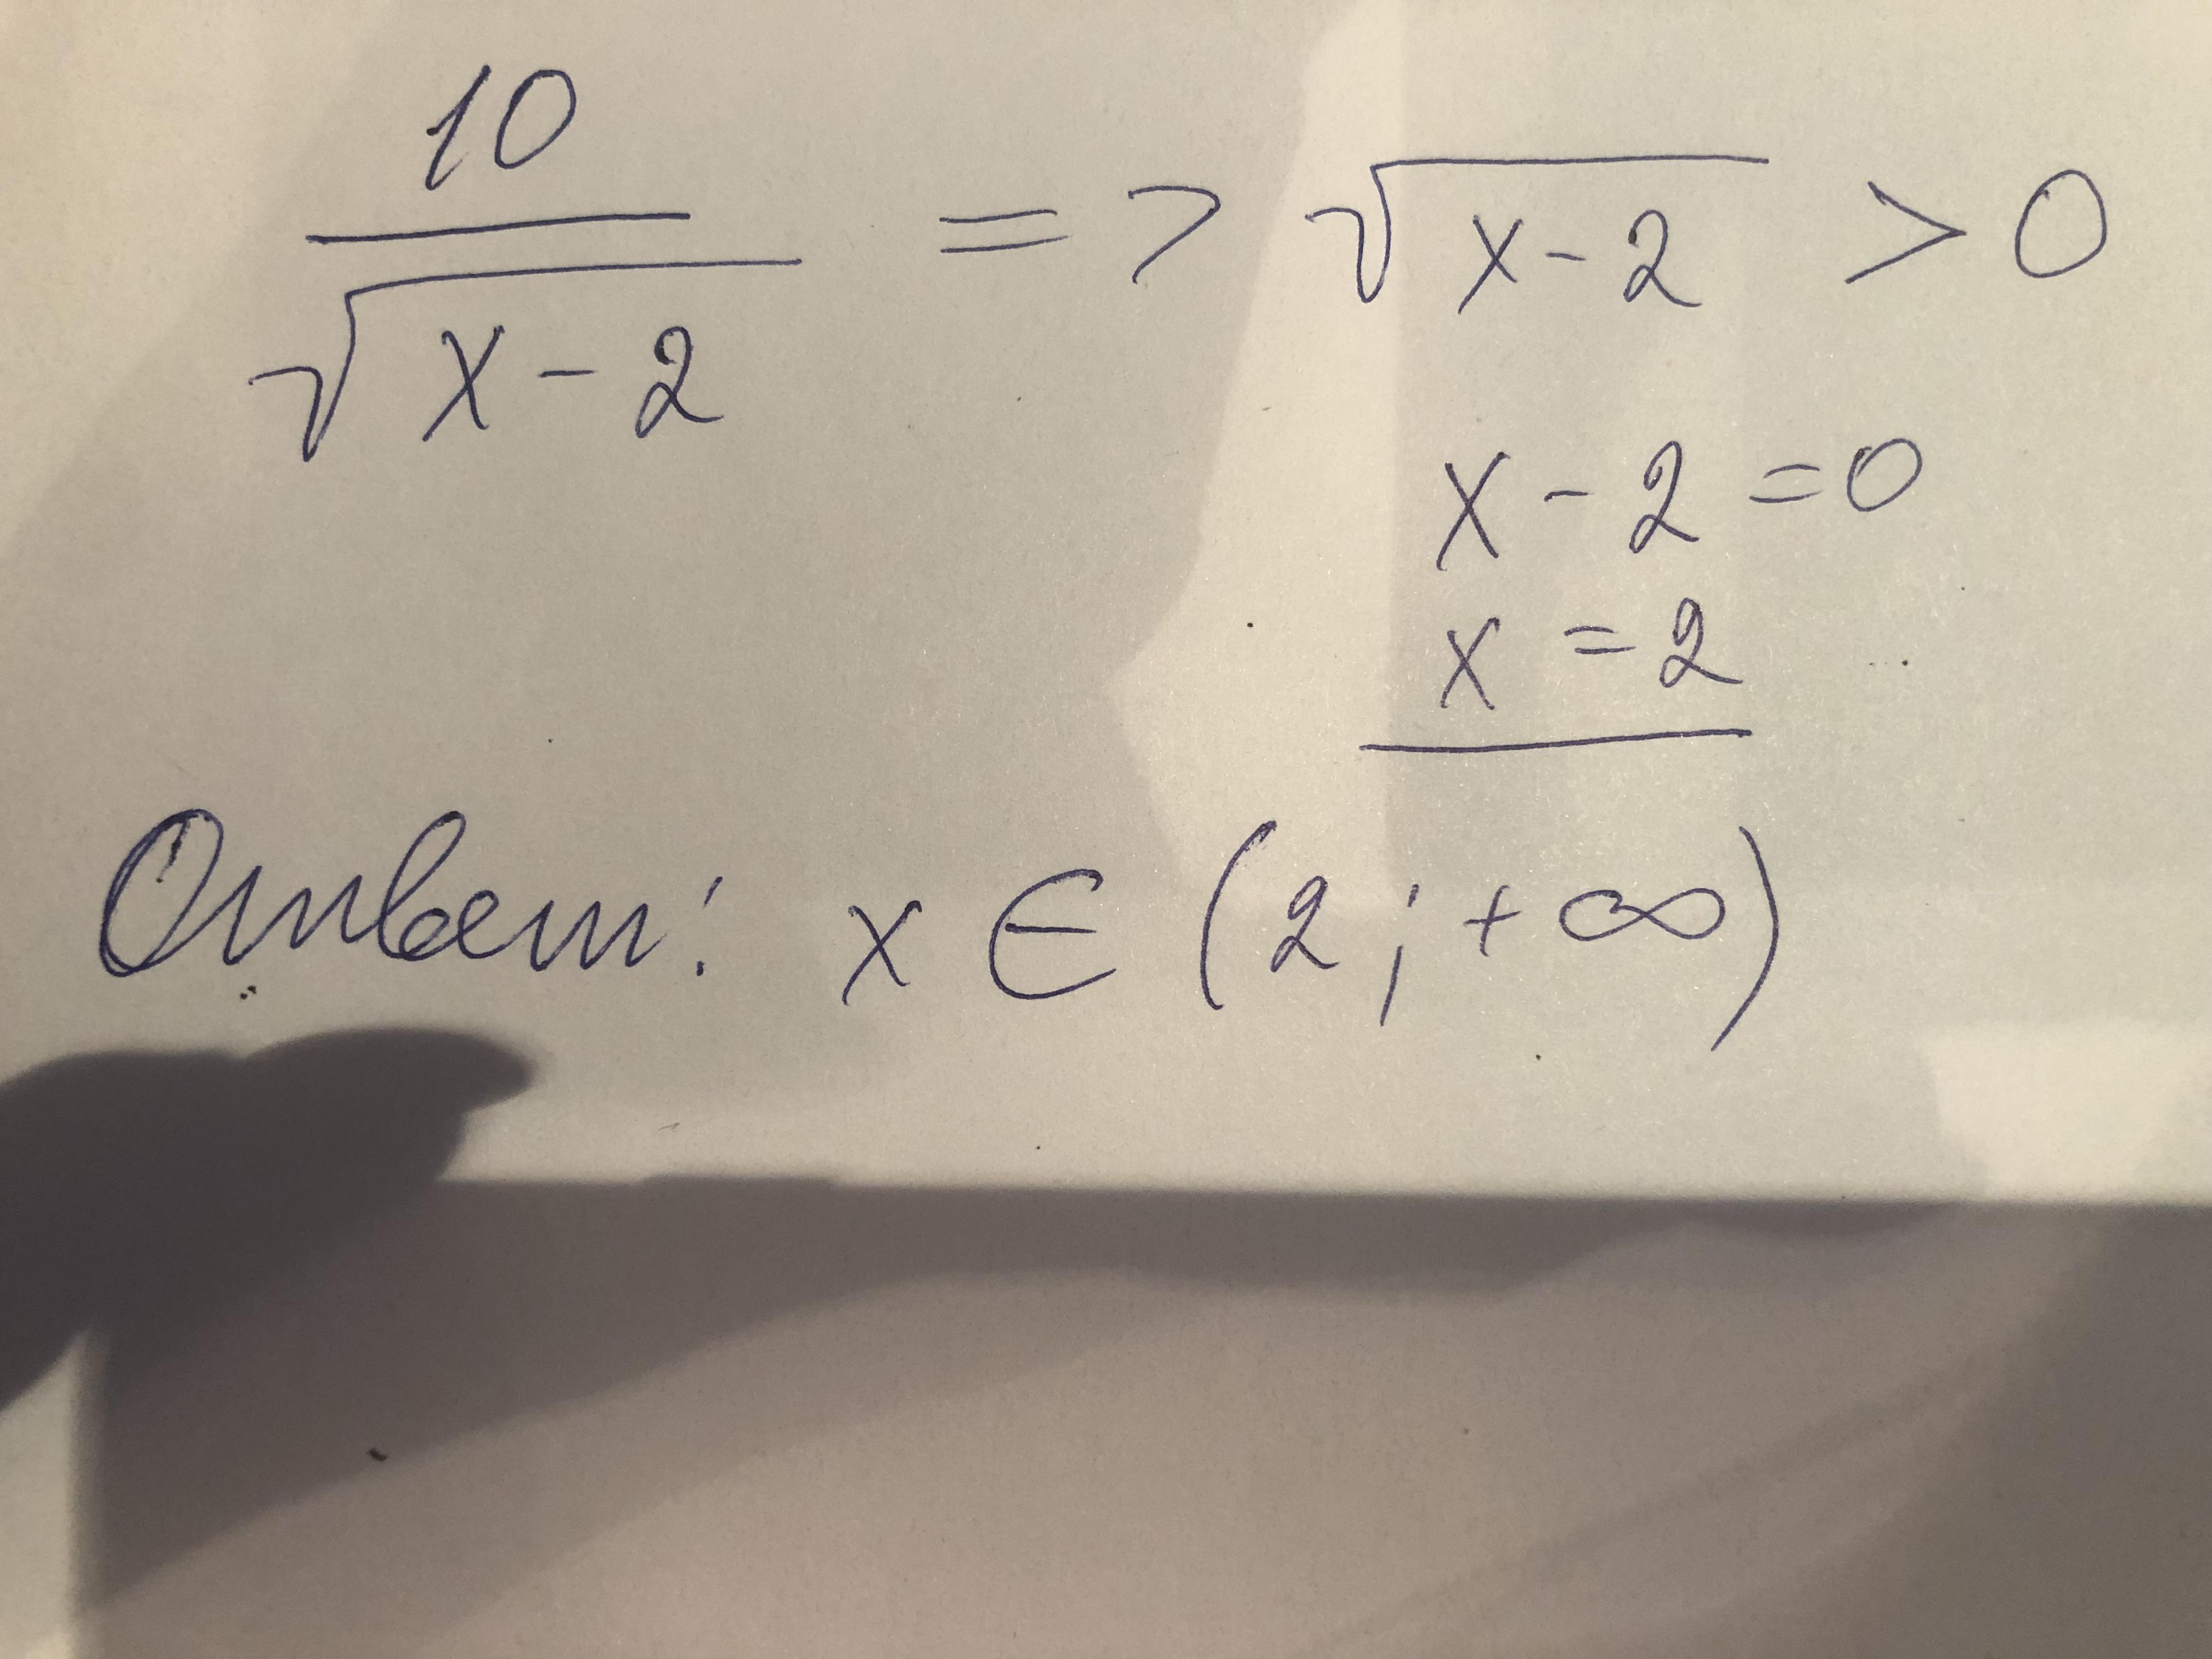 10/√(x-2) => √(x-2) > 0
x - 2 = 0
x = 2
Ответ: x ∈ (2; +∞)